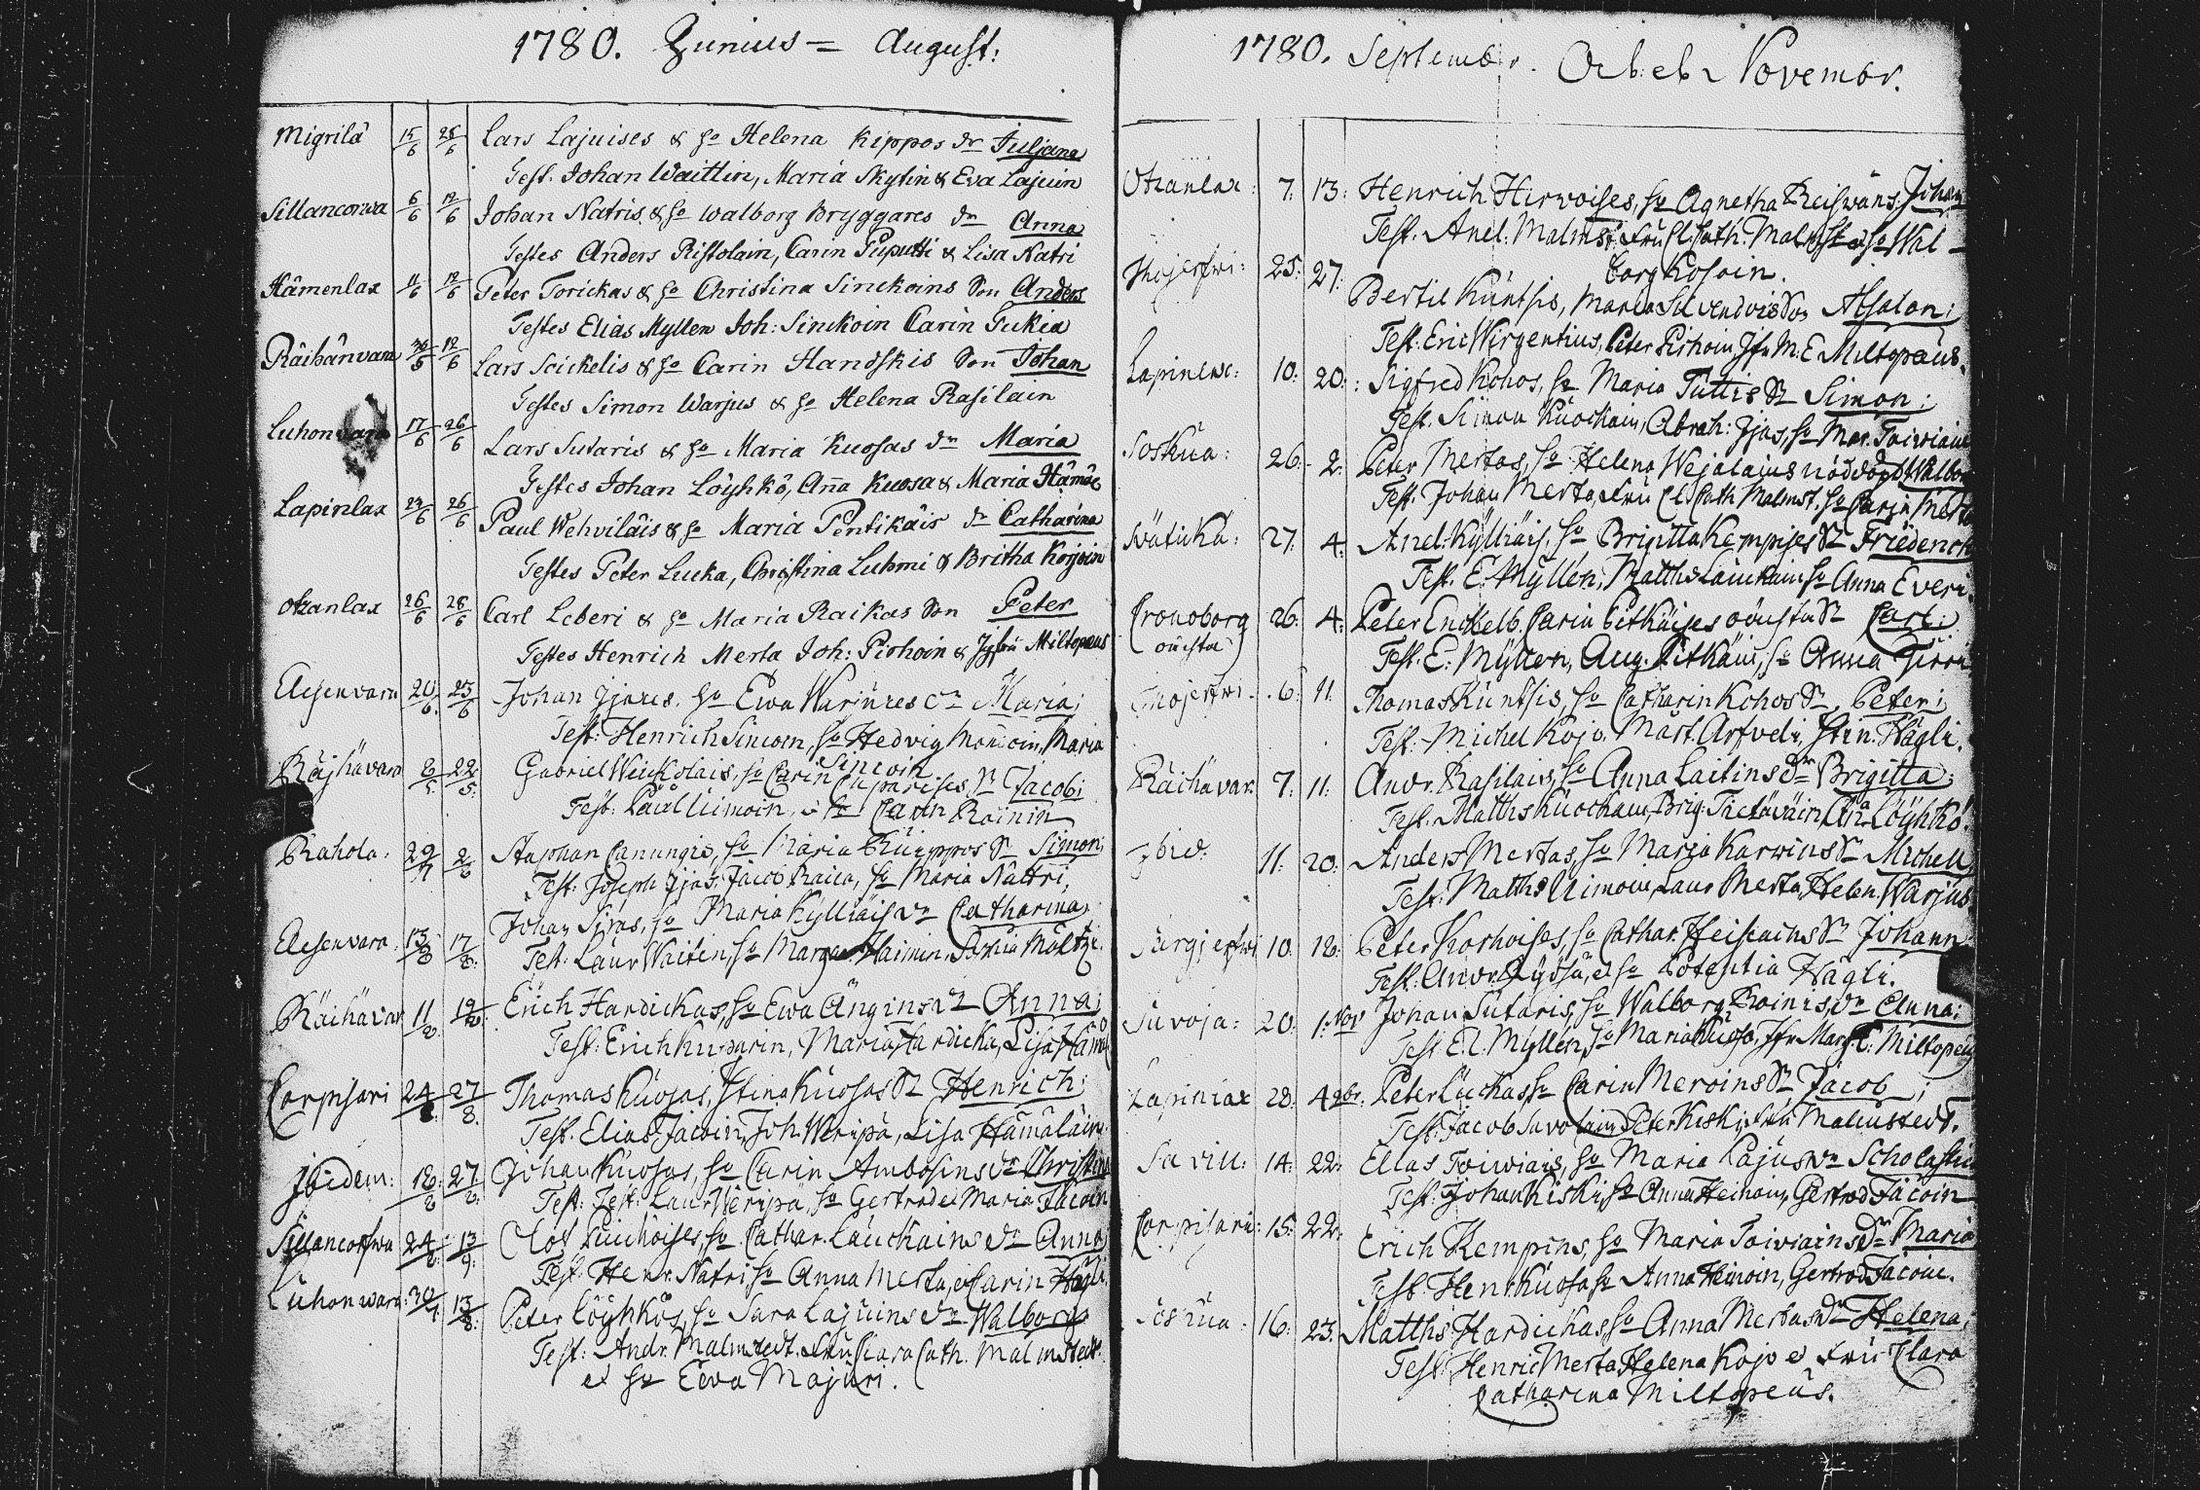 1780. Junius = August:
Migrilä 15/6 25/6 Lars Lajuises & ho Helena Kippos dr Juljana
Test. Johan Waittin, Maria Skytin & Eva Lajuin
Sillancorwa 6/6 12/6 Johan Natris & ho Walborg Bryggares dr Anna
Testes Anders Ristolain, Carin Puputti & Lisa Natri
Hämenlax 11/6 12/6 Peter Torickas & ho Christina Sinckoins Son Anders
Testes Elias Myllen Joh: Sinckoin Carin Tukia
Räihänvara 12/6 Lars Scickelis & ho Carin Handskis Son Johan
Testes Simon Warjus & ho Helena Rasilain
Luhonvara 17/6 26/6 Lars Sutaris & ho Maria Kuosas dr Maria
Testes Johan Löyhkö, Aña Kuosa & Maria Hämäl
Lapinlax 24/6 26/6 Paul Wehviläis & ho Maria Pentikäis dr Catharina
Testes Peter Lucka, Christina Luhmi & Britha Korjoin
Otzanlax 26/6 28/6 Carl Leberi & ho Maria Raikas Son Peter
Testes Henrich Merta Joh: Pirhoin & Jgfru Miltopeus
Elisenvara 20/6 25/6 Johan Jjäxes, ho Ewa Warjuxes dr Maria;
Test: Henrich Sincoin, ho Hedvig Monoin, Maria
Sincoin
Räjhävara 22/5 Gabriel Weickolais, ho Carin Cuparises Sr Jacob;
Test: Pääl Uimoin, & ho Carin Roinin
Rahola: 29/7 2/8 Staphan Canungis, ho Maria Kuippos Sr Simon;
Test: Joseph Jjäs, Jacob Raica, ho Maria Nattri;
Elisenvara: 13/8 17/8 Johan Sjras, ho Maria Kylliäis dr Catharina;
Test: Laur Waitin, ho Margar. Haimin, Sophia Möltze.
Räihävar 11/8 19/8 Erich Hardickas, ho Ewa Änginsdr Anna;
Test: Erich Kuparin, Maria Hardicka, Lisa Hämäl
Corpisari 24/8 27/8. Thomas Kuosas, Stina Kuosas Sr Henrich;
Test. Elias Jäcoin, Joh. Weripä, Lisa Hämäläin.
Jbidem: 18/8 27/8 Johan Kuosas, ho Carin Ambosins dr Christin
Test: Test: Laur Weripä, ho Gertrud & Maria Jäcoin
Sillancorfwa 24/8 13/9. Olof Puichoises, ho Cathar. Lauckains dr Anna;
Test: Henr. Natri ho Anna Merta, et Carin Hägli
Luhonwara: 13/8. Peter Löyhkös, ho Sara Lajuins dr Walborg
Test: Andr. Malmstedt. Fru Clara Cath. Malmstedt
et ho Eeva Majuri.
1780. Septembr. Octob. et Novembr.
Otzanlax: 7: 13: Henrich Hirvoises, ho Agnetha Reiswäns Johan
Test. And. Malmst. Fru Cl. Cath. Malmst. et ho Wal-
borg Kosoin.
Ihojerfwi: 25: 27: Bertil Küntsis, Maria Silvendois Son Absalon;
Test: Eric Wirgentius, Peter Pirhoin Jfr M. E. Miltopäus.
Lapinlax: 10: 20: Sigfred Kohos, ho Maria Tuttis Sr Simon;
Test. Simon Kuockain, Abrah: Jjäs, ho Mar. Toiwiain
Soskua: 26: 2: Peter Mertas, ho Helena Wejalaius nöddöpt Walbor
Test. Johan Merta, Fru Cl. Cath Malmst. ho Carin Merta
27: 4: And. Kylliäis, ho Brigitta Kempises Sr Friedrich
Test. E. Myllen, Matths Lauckain ho Anna Everi
Cronoborg 26: 4: Peter Enckelb. Carin Pitkäises oäcksta Sr Carl:
oäcksta
Test. E: Myllen, Aug. Pitkäin, ho Anna
Ihojerfwi. 6: 11. Thomas Küntsis, ho Catharin Kohos Sr. Peter;
Test. Michel Kojo. Märt. Arfvedi, Stin. Hägli.
Räihävar. 7: 11: Andr. Rasilais, ho Anna Laitins dr Brigitta;
Test. Matths Kuockain, Brig. Tietäväin, Aña Löyhkö.
Jbid: 11: 20: Anders Mertas, ho Maria Karwins Sr Michell
Test: Matths Uimoin, Laur Merta, Helen. Warjus
Särgjerfwi 10: 18: Peter Korhoises, ho Cathar. Heiscains Sr Johann
Test. Andr. Löydsä, et ho Potentia Hägli.
Suvoja: 20: 1: Nov Johan Sutaris, ho Walborg Roinis, dr Anna;
Test E. L. Myllén, ho Maria Kuosa, Jfr Marg. C: Miltopeus
Lapinlax 28: 4 9br. Peter Luckas, ho Carin Meroins Sr Jacob;
Test: Jacob Savolain, Peter Kiski, Fru Malmstedt.
Savill: 14: 22: Elias Toiwiais, ho Maria Kajus dr Scholastic
Test: Johan Kiski, ho Anna Heinoin, Gertrud Jäcoin
Corpisari: 15: 22: Erich Kempins, ho Maria Toiviains dr Maria
Test: Henr. Kuosa, ho Anna Heinoin, Gertrud Jäcoin.
Soskua: 16: 23: Matths Hardickas, ho Anna Mertas dr Helena;
Test: Henric Merta, Helena Kojo et Fru Clara
Catharina Miltopeus.